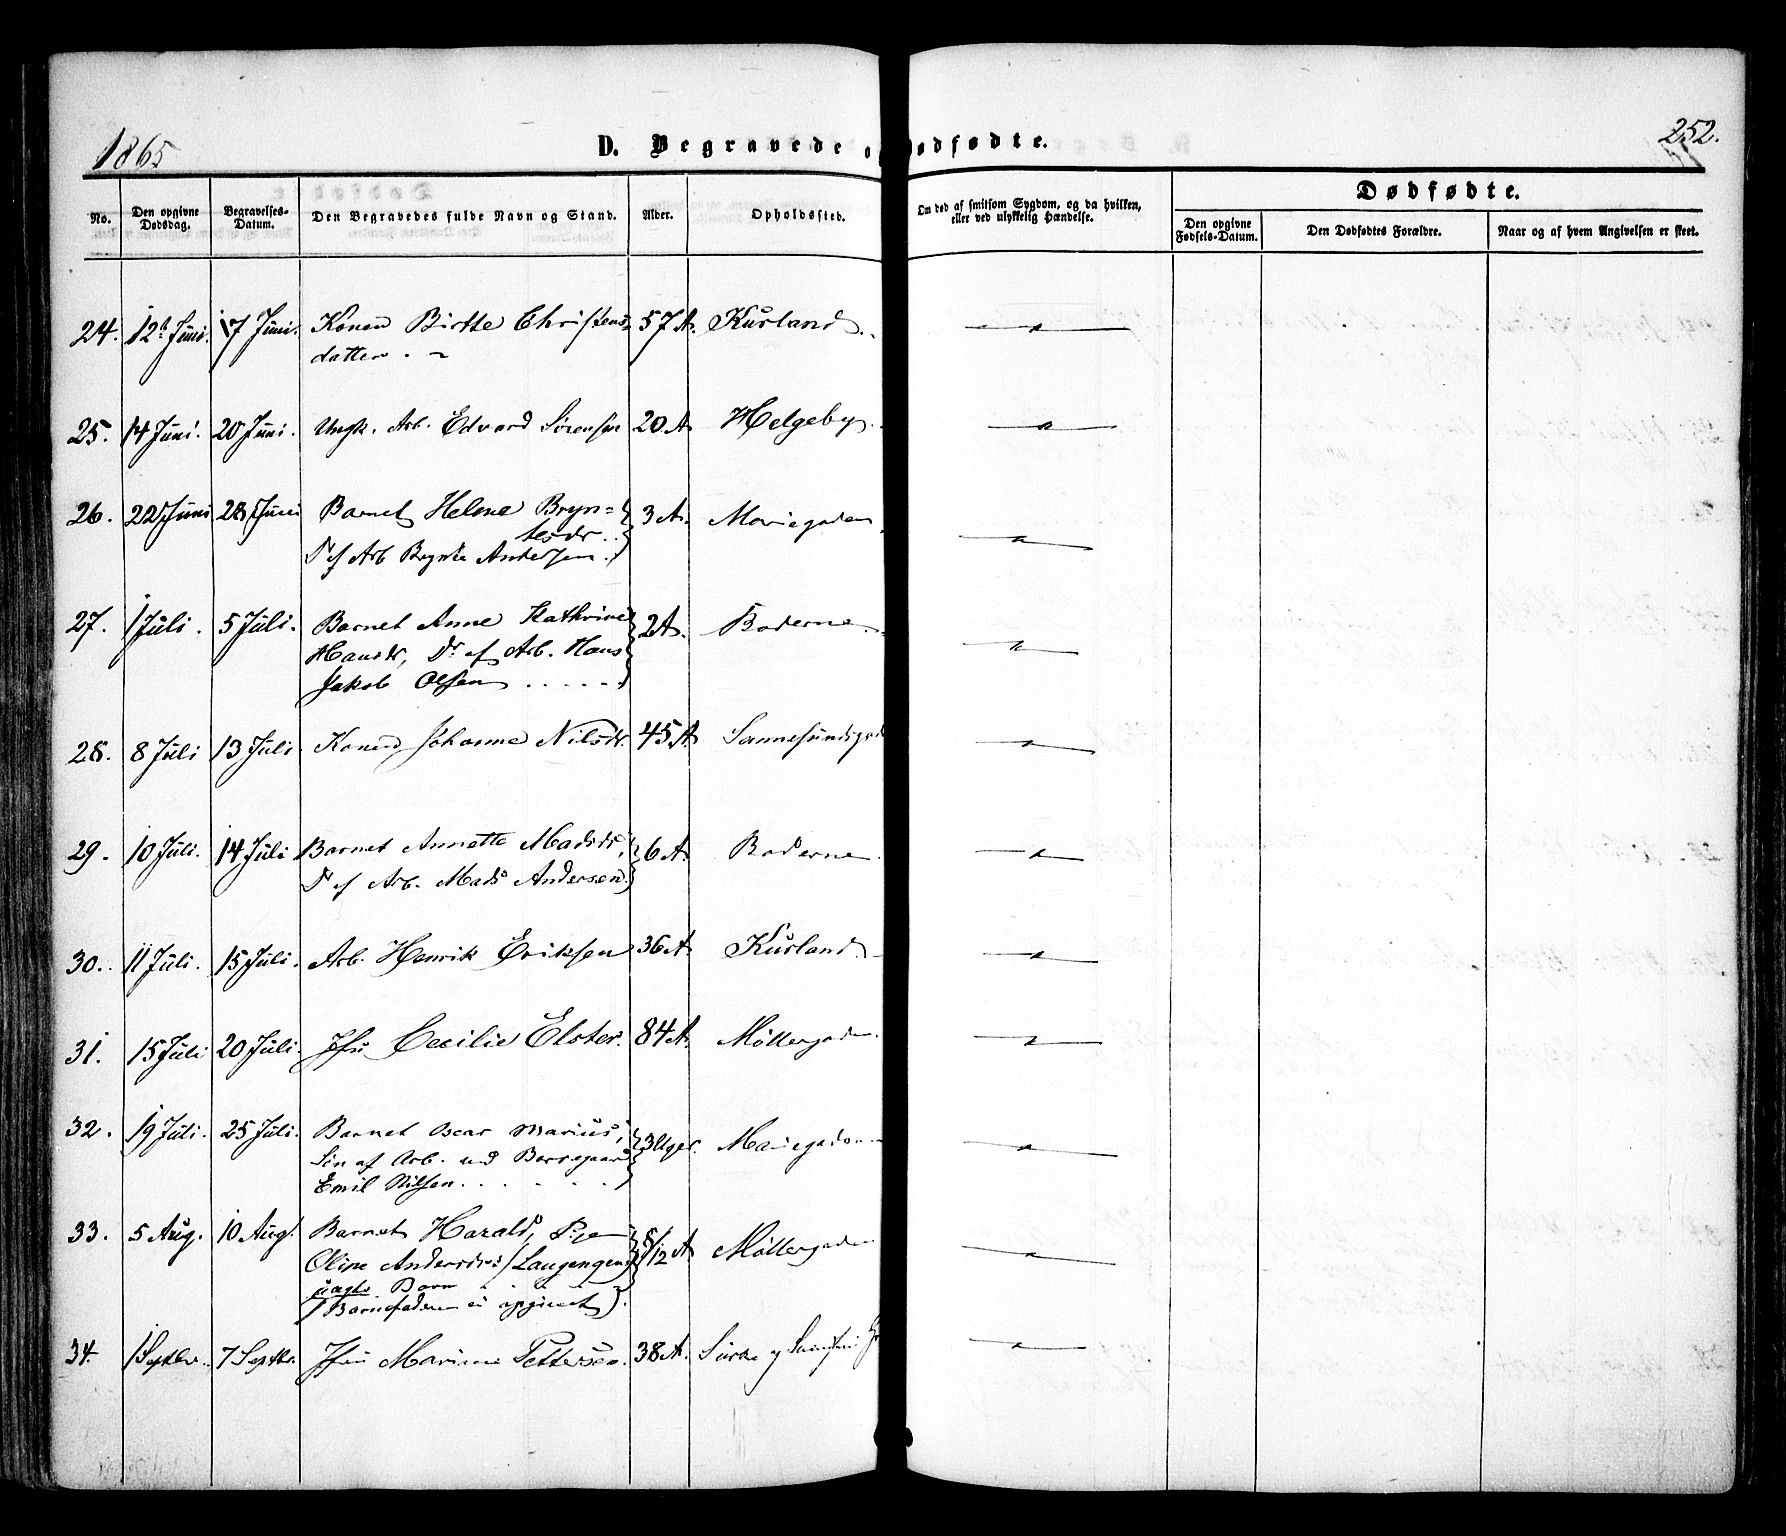 1865
D. Begravede o dødfødte.
252.
No.
Den opgivne Dødsdag.
Begravelses-Datum.
Den Begravedes fulde Navn og Stand.
Alder.
Opholdssted.
Om død af smitsom Sygdom, og da hvilken,
eller ved ulykkelig Hændelse.
Dødfødte.
Den opgivne Fødsels-Datum.
Den Dødfødtes Forældre.
Naar og af hvem Angivelsen er skeet.
24. 12te Juni. 17 Juni. Konen Birtte Christens 57 A. Kurland.
datter.
25. 14 Juni. 20 Juni. Ungk. Arb. Edvard Sörensen 20 A Helgeby.
26. 22 Juni 28 Juni Barnet Helene Bryn= 3 A. Mariegaden
tesdr..
Dr af Arb Brynte Andersen.
27. 1 Juli. 5 Juli. Barnet Anne Kathrine 2 A. Boderne.
Hansdr, Dr af Arb. Hans
Jakob Olsen .....
28. 8 Juli 13 Juli Konen Johanne Nilsdr. 45 A. Sannesundsgad
29. 10 Juli. 14 Juli Barnet Annette Madsdr, 6 A. Boderne.
Dr af Arb. Mads Andersen.
30. 11 Juli. 15 Juli. Arb. Henrik Eriksen 36 A. Kurland
31. 15 Juli 20 Juli. Jfru Cecilie Elster. 84 A. Möllergaden.
32. 19 Juli. 25 Juli. Barnet Oscar Marius, 3 Uger. Mariegaden
Sön af Arb. ved Borregaard
Emil Nilsen......
33. 5 Aug. 10 Aug. Barnet Harald, Pige 8/12 A Möllergaden
Oline Andersdrs (Laugengen)
uægte Barn
(Barnefaderen ei opgivet).
34. 1 Septbr. 7 Septbr. Jfru Marine Pettersen. 38 A.